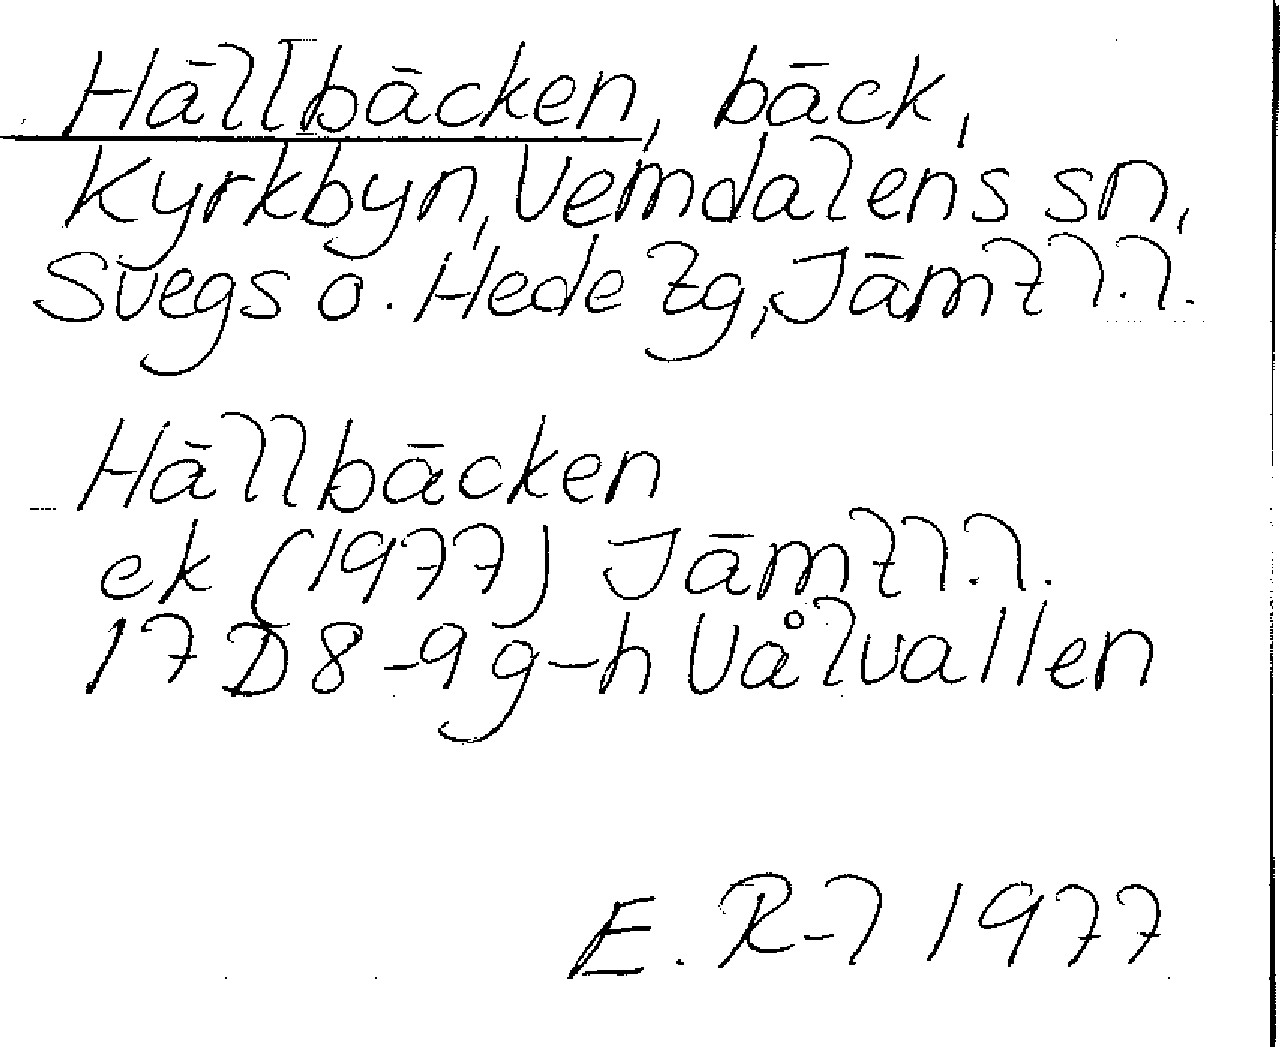 Hällbäcken, bäck,
Kyrkbyn, Vemdalens sn,
Svegs o. Hede tg, Jämtl.l.
Hällbäcken
ek (1977) Jämtl.l.
17 D 8-9 g-h Vålvallen
E. R-l 1977